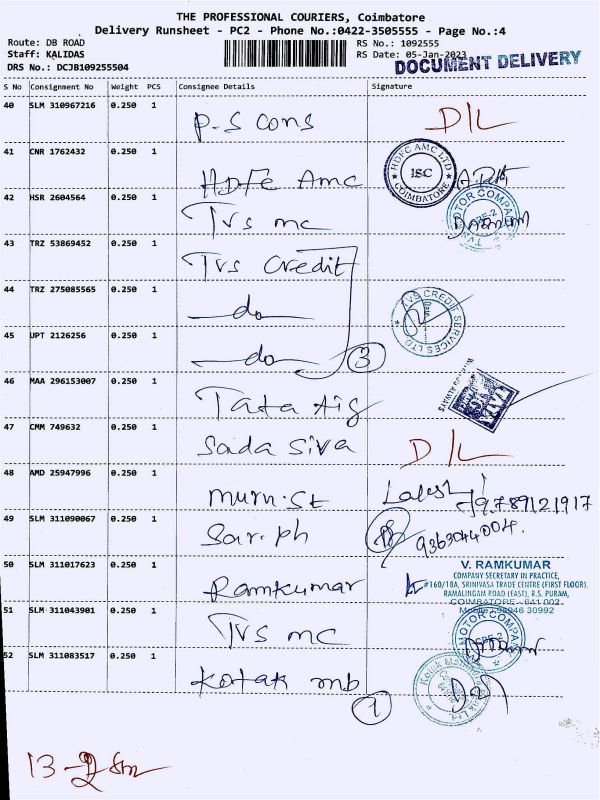 THE PROFESSIONAL COURIERS, Coimbatore
Delivery Runsheet - PC2 - Phone No.:0422-3505555 - Page No.:4
Route: DB ROAD
RS No.: 1092555
Staff: KALIDAS
RS Date: 05-Jan-2023
DRS No.: DCJB109255504
DOCUMENT DELIVERY
S No Consignment No Weight PCS Consignee Details Signature
40 SLM 310967216 0.250 1
P.S Cons D/L
41 CNR 1762432 0.250 1
HDFC AMC LTD
ISC
COIMBATORE
HDFC Amc
42 HSR 2604564 0.250 1
TVS mc
MOTOR COMPANY
43 TRZ 53869452 0.250 1
TVS Credit
44 TRZ 275085565 0.250 1
do
TVS CREDIT SERVICES LTD
45 UPT 2126256 0.250 1
do 3
46 MAA 296153007 0.250 1
Tata Aig
ALWAYS
47 CMM 749632 0.250 1
Sada Siva D/L
48 AMD 25947996 0.250 1
mum.St 9789121917
49 SLM 311090067 0.250 1
Sar.Ph 9363044004
50 SLM 311017623 0.250 1
Ramkumar
V. RAMKUMAR
COMPANY SECRETARY IN PRACTICE,
#160/18A, SRINIVASA TRADE CENTRE (FIRST FLOOR),
RAMALINGAM ROAD (EAST), R.S. PURAM,
COIMBATORE - 641 002
Mobile: 96946 30992
51 SLM 311043901 0.250 1
TVS mc
MOTOR COMPANY
52 SLM 311083517 0.250 1
Kotak mb 1
13 -